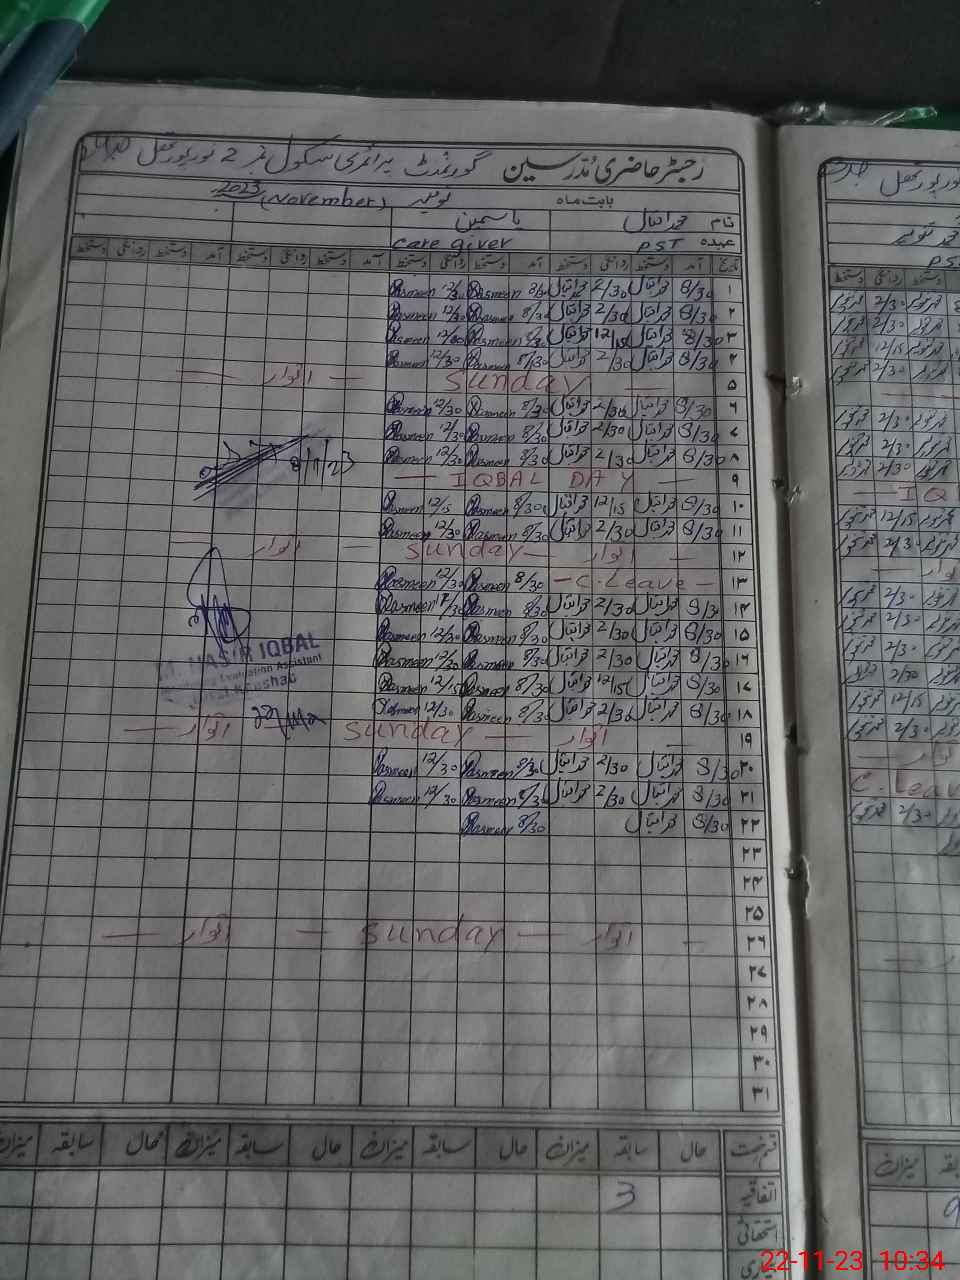 رجسٹر حاضری مدرسین گورنمنٹ پرائمری سکول نمبر 2 نورپور تھل
بابت ماہ نومبر (November) 2023
نام محمد اقبال یاسمین
عہدہ PST care giver
تاریخ آمد دستخط روانگی دستخط آمد دستخط روانگی دستخط آمد دستخط روانگی دستخط آمد دستخط روانگی دستخط
۱ 8/30 محمد اقبال 2/30 محمد اقبال 8/30 Yasmeen 12/30 Yasmeen
۲ 8/30 محمد اقبال 2/30 محمد اقبال 8/30 Yasmeen 12/30 Yasmeen
۳ 8/30 محمد اقبال 12/15 محمد اقبال 8/30 Yasmeen Yasmeen
۴ 8/30 محمد اقبال 2/30 محمد اقبال 8/30 Yasmeen 12/30 Yasmeen
۵ — Sunday — اتوار —
۶ 8/30 محمد اقبال 2/30 محمد اقبال 8/30 Yasmeen 12/30 Yasmeen
۷ 8/30 محمد اقبال 2/30 محمد اقبال 8/30 Yasmeen 12/30 Yasmeen
۸ 8/30 محمد اقبال 2/30 محمد اقبال 8/30 Yasmeen 12/30 Yasmeen 8/11/23
۹ — IQBAL DAY —
۱۰ 8/30 محمد اقبال 12/15 محمد اقبال 8/30 Yasmeen 12/15 Yasmeen
۱۱ 8/30 محمد اقبال 2/30 محمد اقبال 8/30 Yasmeen 12/30 Yasmeen
۱۲ — اتوار — Sunday — اتوار —
۱۳ — C.Leave — 8/30 Yasmeen 12/30 Yasmeen
۱۴ 8/30 محمد اقبال 2/30 محمد اقبال 8/30 Yasmeen 12/30 Yasmeen
۱۵ 8/30 محمد اقبال 2/30 محمد اقبال 8/30 Yasmeen 12/30 Yasmeen
۱۶ 8/30 محمد اقبال 2/30 محمد اقبال 8/30 Yasmeen 12/30 Yasmeen
۱۷ 8/30 محمد اقبال 12/15 محمد اقبال 8/30 Yasmeen 12/15 Yasmeen
۱۸ 8/30 محمد اقبال 2/30 محمد اقبال 8/30 Yasmeen 12/30 Yasmeen
۱۹ — اتوار — Sunday — اتوار —
۲۰ 8/30 محمد اقبال 2/30 محمد اقبال 8/30 Yasmeen 12/30 Yasmeen
۲۱ 8/30 محمد اقبال 2/30 محمد اقبال 8/30 Yasmeen 12/30 Yasmeen
۲۲ 8/30 محمد اقبال 8/30 Yasmeen
۲۳
۲۴
۲۵
۲۶ — اتوار — Sunday — اتوار —
۲۷
۲۸
۲۹
۳۰
۳۱
M. NASIR IQBAL
Evaluation Assistant
Khushab
قسم رخصت حال سابقہ میزان حال سابقہ میزان حال سابقہ میزان حال سابقہ میزان
اتفاقیہ 3
استحقاقی
بیماری
محمد تنویر
PS
دستخط روانگی دستخط
2/30
2/30
12/15
2/30
2/30
2/30
2/30
— IQ
12/15
2/30
2/30
2/30
2/30
2/30
12/15
2/30
C. Leav
2/30
میزان
22-11-23 10:34